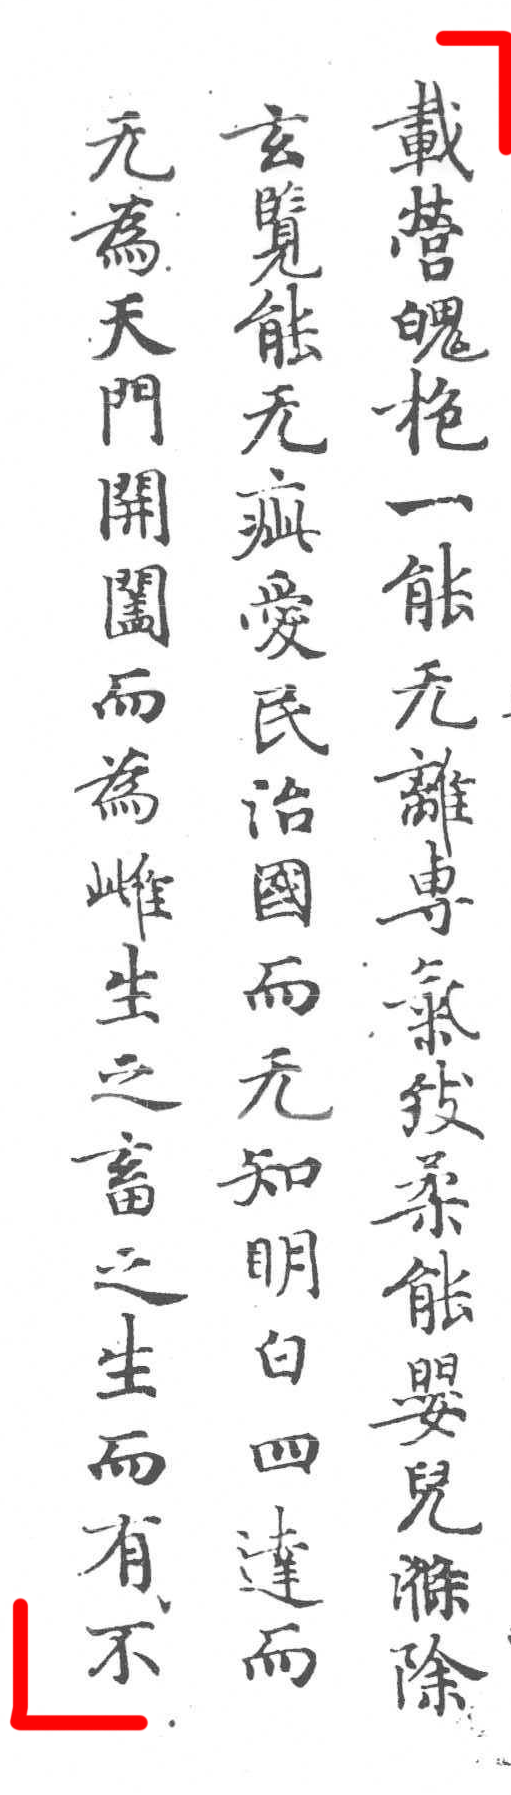 載營魄抱一能无離專氣致柔能嬰兒滌除
玄覽能无疵愛民治國而无知明白四達而
无為天門開闔而為雌生之畜之生而有不